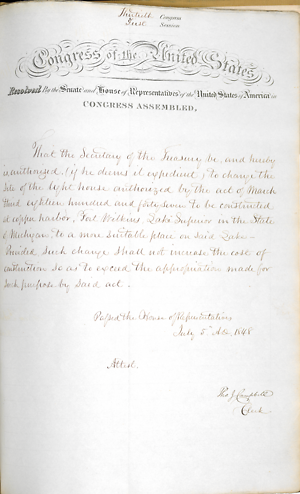 Thirtieth Congress
First Session
Congress of the United States
Resolved By the Senate and House of Representatives of the United States of America in
CONGRESS ASSEMBLED,
That the Secretary of the Treasury be, and hereby
is authorized (if he deems it expedient) to change the
site of the light house authorized by the act of March
third eighteen hundred and forty seven to be constructed
at copper harbor, Fort Wilkins Lake Superior in the State
of Michigan to a more suitable place on said Lake –
Provided such change shall not increase the cost of
construction so as to exceed the appropriation made for
such purpose by said act.
Passed the House of Representatives
July 5th 1848
Attest.
Tho J. Campbell
Clerk